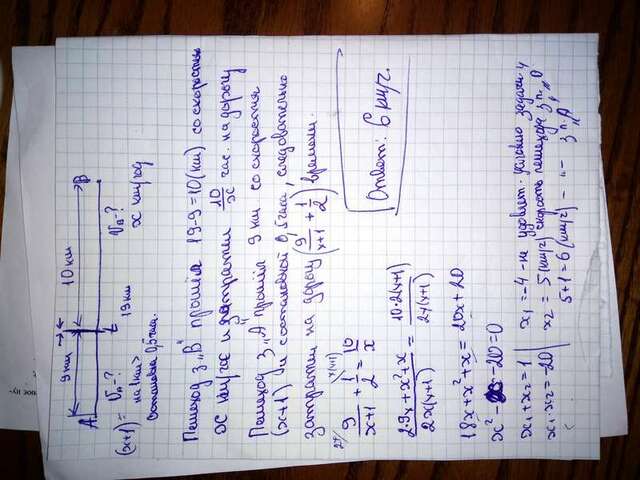 9 км 10 км
A B
t
Vₐ-? 19 км Vв-?
(x+1)= на 1км> x км/год
остановка 0,5 часа.
Пешеход з „В“ прошёл 19-9=10(км) со скоростью
x км/час и затратил 10/x час. на дорогу
Пешеход з „А“ прошёл 9 км. со скоростя
(x+1) и с остановкой 0,5 часа, следовательно
затратил на дорогу (9/(x+1) + 1/2) времени.
9/(x+1) + 1/2 = 10/x
Ответ: 6 км/ч.
(2·9x+x²+x)/(2x(x+1)) = (10·2(x+1))/(2x(x+1))
18x+x²+x=20x+20
x² - -20=0
x₁+x₂=1 x₁=-4 -не удовлет. условию задачи
x₁·x₂=-20 x₂ = 5(км/ч) скорость пешехода з п.
5+1=6(км/ч) -„- з п. „А“